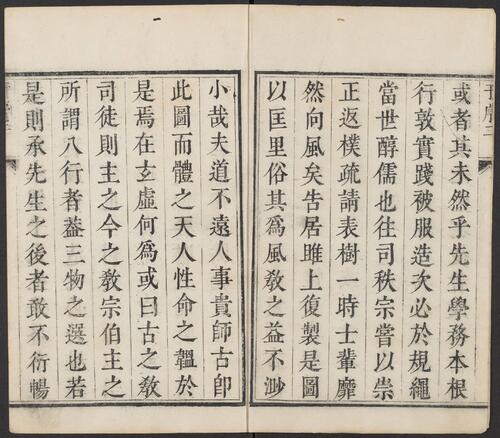 或者其未然乎先生學務本根
行敦實踐被服造次必於規繩
當世醇儒也往司秩宗嘗以崇
正返樸疏請表樹一時士輩靡
然向風矣告居雎上復製是圖
以匡里俗其為風教之益不渺
小哉夫道不遠人事貴師古卽
此圖而體之天人性命之韞於
是焉在玄虛何為或曰古之教
司徒則主之今之教宗伯主之
所謂八行者蓋三物之選也若
是則承先生之後者敢不衍暢